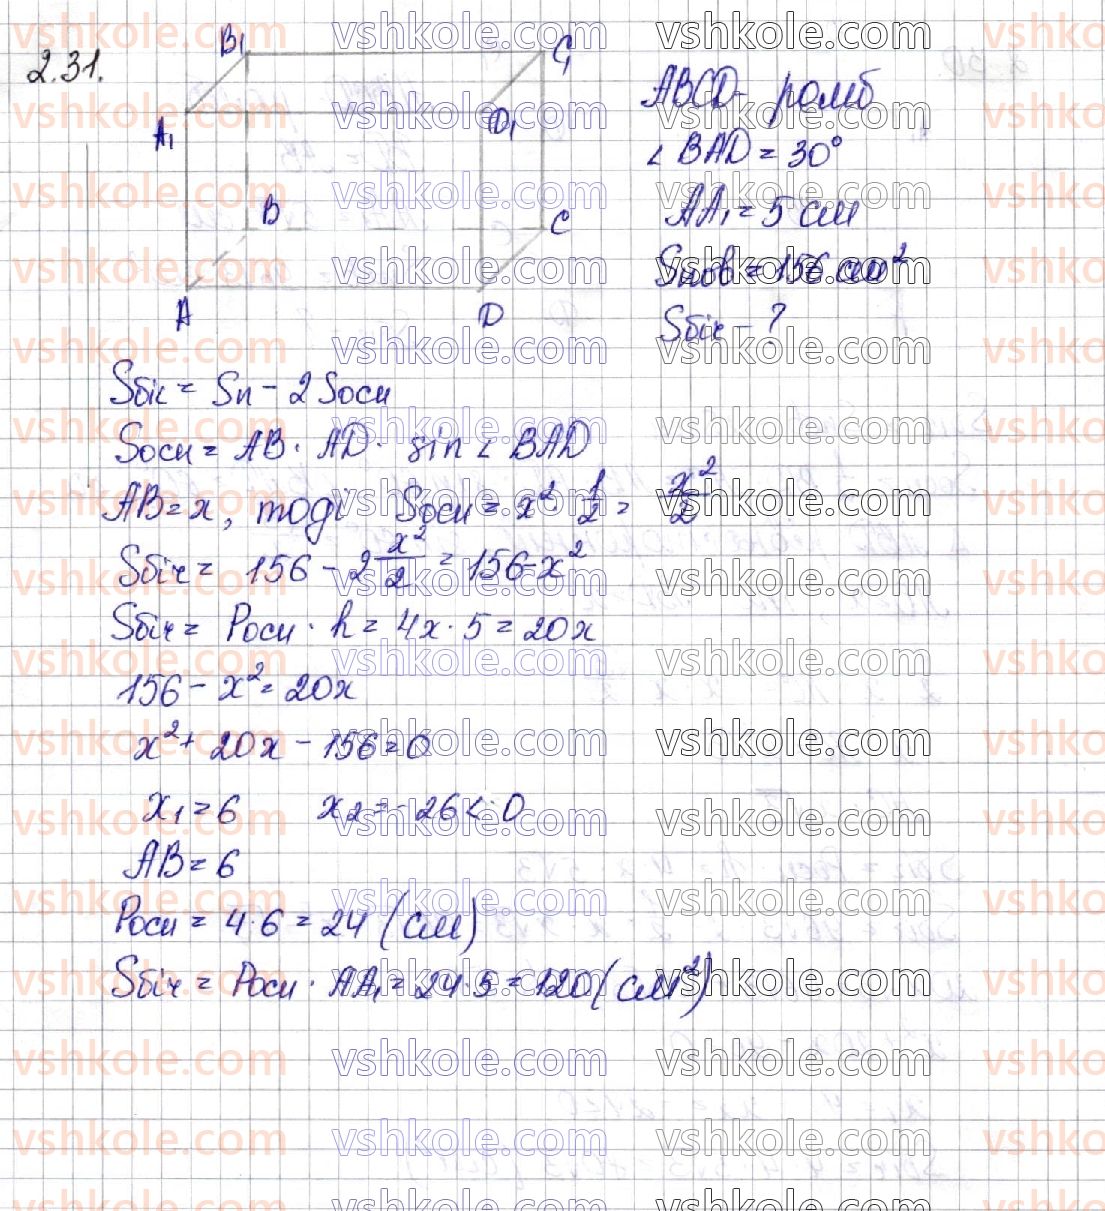 2.31.
B₁ C₁
A₁ D₁
B C
A D
ABCD - ромб
∠ BAD = 30°
AA₁ = 5 см
Sпов = 156 см²
Sбіч - ?
Sбіч = Sп - 2 Sосн
Sосн = AB · AD · sin ∠ BAD
AB = x, тоді Sосн = x² · 1/2 = x²/2
Sбіч = 156 - 2 x²/2 = 156 - x²
Sбіч = Pосн · h = 4x · 5 = 20x
156 - x² = 20x
x² + 20x - 156 = 0
x₁ = 6 x₂ = -26 < 0
AB = 6
Pосн = 4 · 6 = 24 (см)
Sбіч = Pосн · AA₁ = 24 · 5 = 120 (см²)
vshkole.com